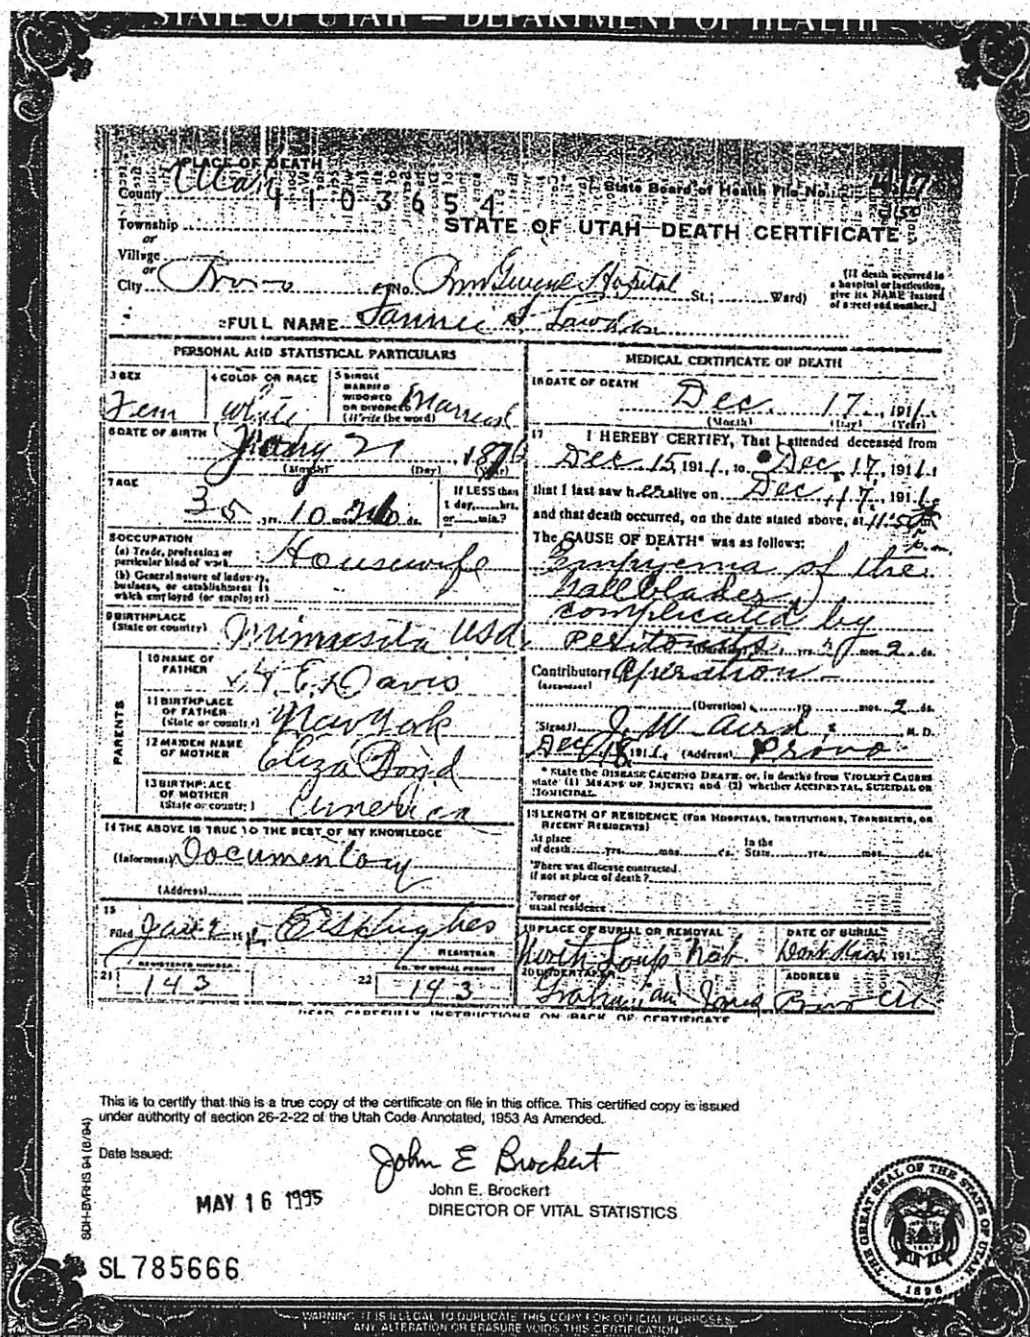 STATE OF UTAH — DEPARTMENT OF HEALTH
PLACE OF DEATH
County Utah
State Board of Health File No.
4103654
Township
or
STATE OF UTAH—DEATH CERTIFICATE
Village
or
City Provo No. Hospital St.; Ward)
(If death occurred in
a hospital or institution,
give its NAME instead
of street and number.)
FULL NAME Fannie
PERSONAL AND STATISTICAL PARTICULARS
3 SEX
Fem
4 COLOR OR RACE
White
5 SINGLE
MARRIED
WIDOWED
OR DIVORCED
(Write the word)
Married
6 DATE OF BIRTH
21 187
(Month) (Day) (Year)
7 AGE
35 yrs. 10 mos. ds.
If LESS than
1 day, hrs.
or min.?
8 OCCUPATION
(a) Trade, profession or
particular kind of work
Housewife
(b) General nature of industry,
business, or establishment in
which employed (or employer)
9 BIRTHPLACE
(State or country)
Minnesita USA
PARENTS
10 NAME OF
FATHER
E. Davis
11 BIRTHPLACE
OF FATHER
(State or country)
New York
12 MAIDEN NAME
OF MOTHER
Eliza Boyd
13 BIRTHPLACE
OF MOTHER
(State or country)
America
14 THE ABOVE IS TRUE TO THE BEST OF MY KNOWLEDGE
(Informant) Documentary
(Address)
15
Filed Jan 2 191 Hughes
REGISTRAR
21 REGISTERED NUMBER
143
22 NO. OF BURIAL PERMIT
143
MEDICAL CERTIFICATE OF DEATH
16 DATE OF DEATH
Dec 17, 1911
(Month) (Day) (Year)
17 I HEREBY CERTIFY, That I attended deceased from
Dec 15 1911, to Dec 17, 1911
that I last saw her alive on Dec 17, 191
and that death occurred, on the date stated above, at 11:50
p.m.
The CAUSE OF DEATH* was as follows:
Empyema of the
complicated by
yrs. mos. 2 ds.
Contributory Operation
(Duration) yrs. mos. 2 ds.
(Signed) J. W. Aird, M. D.
Dec 18 191 (Address) Provo
* State the DISEASE CAUSING DEATH, or, in deaths from VIOLENT CAUSES
state (1) MEANS OF INJURY; and (2) whether ACCIDENTAL, SUICIDAL OR
HOMICIDAL.
18 LENGTH OF RESIDENCE (FOR HOSPITALS, INSTITUTIONS, TRANSIENTS, OR
RECENT RESIDENTS)
At place
of death yrs. mos. ds.
In the
State yrs. mos. ds.
Where was disease contracted
if not at place of death?
Former or
usual residence
19 PLACE OF BURIAL OR REMOVAL
North Loup Neb.
DATE OF BURIAL
Dont Know 191
20 UNDERTAKER
Graham Jones
ADDRESS
Provo
READ CAREFULLY INSTRUCTIONS ON BACK OF CERTIFICATE
This is to certify that this is a true copy of the certificate on file in this office. This certified copy is issued
under authority of section 26-2-22 of the Utah Code Annotated, 1953 As Amended.
Date Issued:
MAY 16 1995
John E Brockert
John E. Brockert
DIRECTOR OF VITAL STATISTICS
SDH-BVRHS 94 (6/94)
SL 785666
THE GREAT SEAL OF THE STATE OF UTAH
1896
WARNING: IT IS ILLEGAL TO DUPLICATE THIS COPY FOR OFFICIAL PURPOSES.
ANY ALTERATION OR ERASURE VOIDS THIS CERTIFICATION